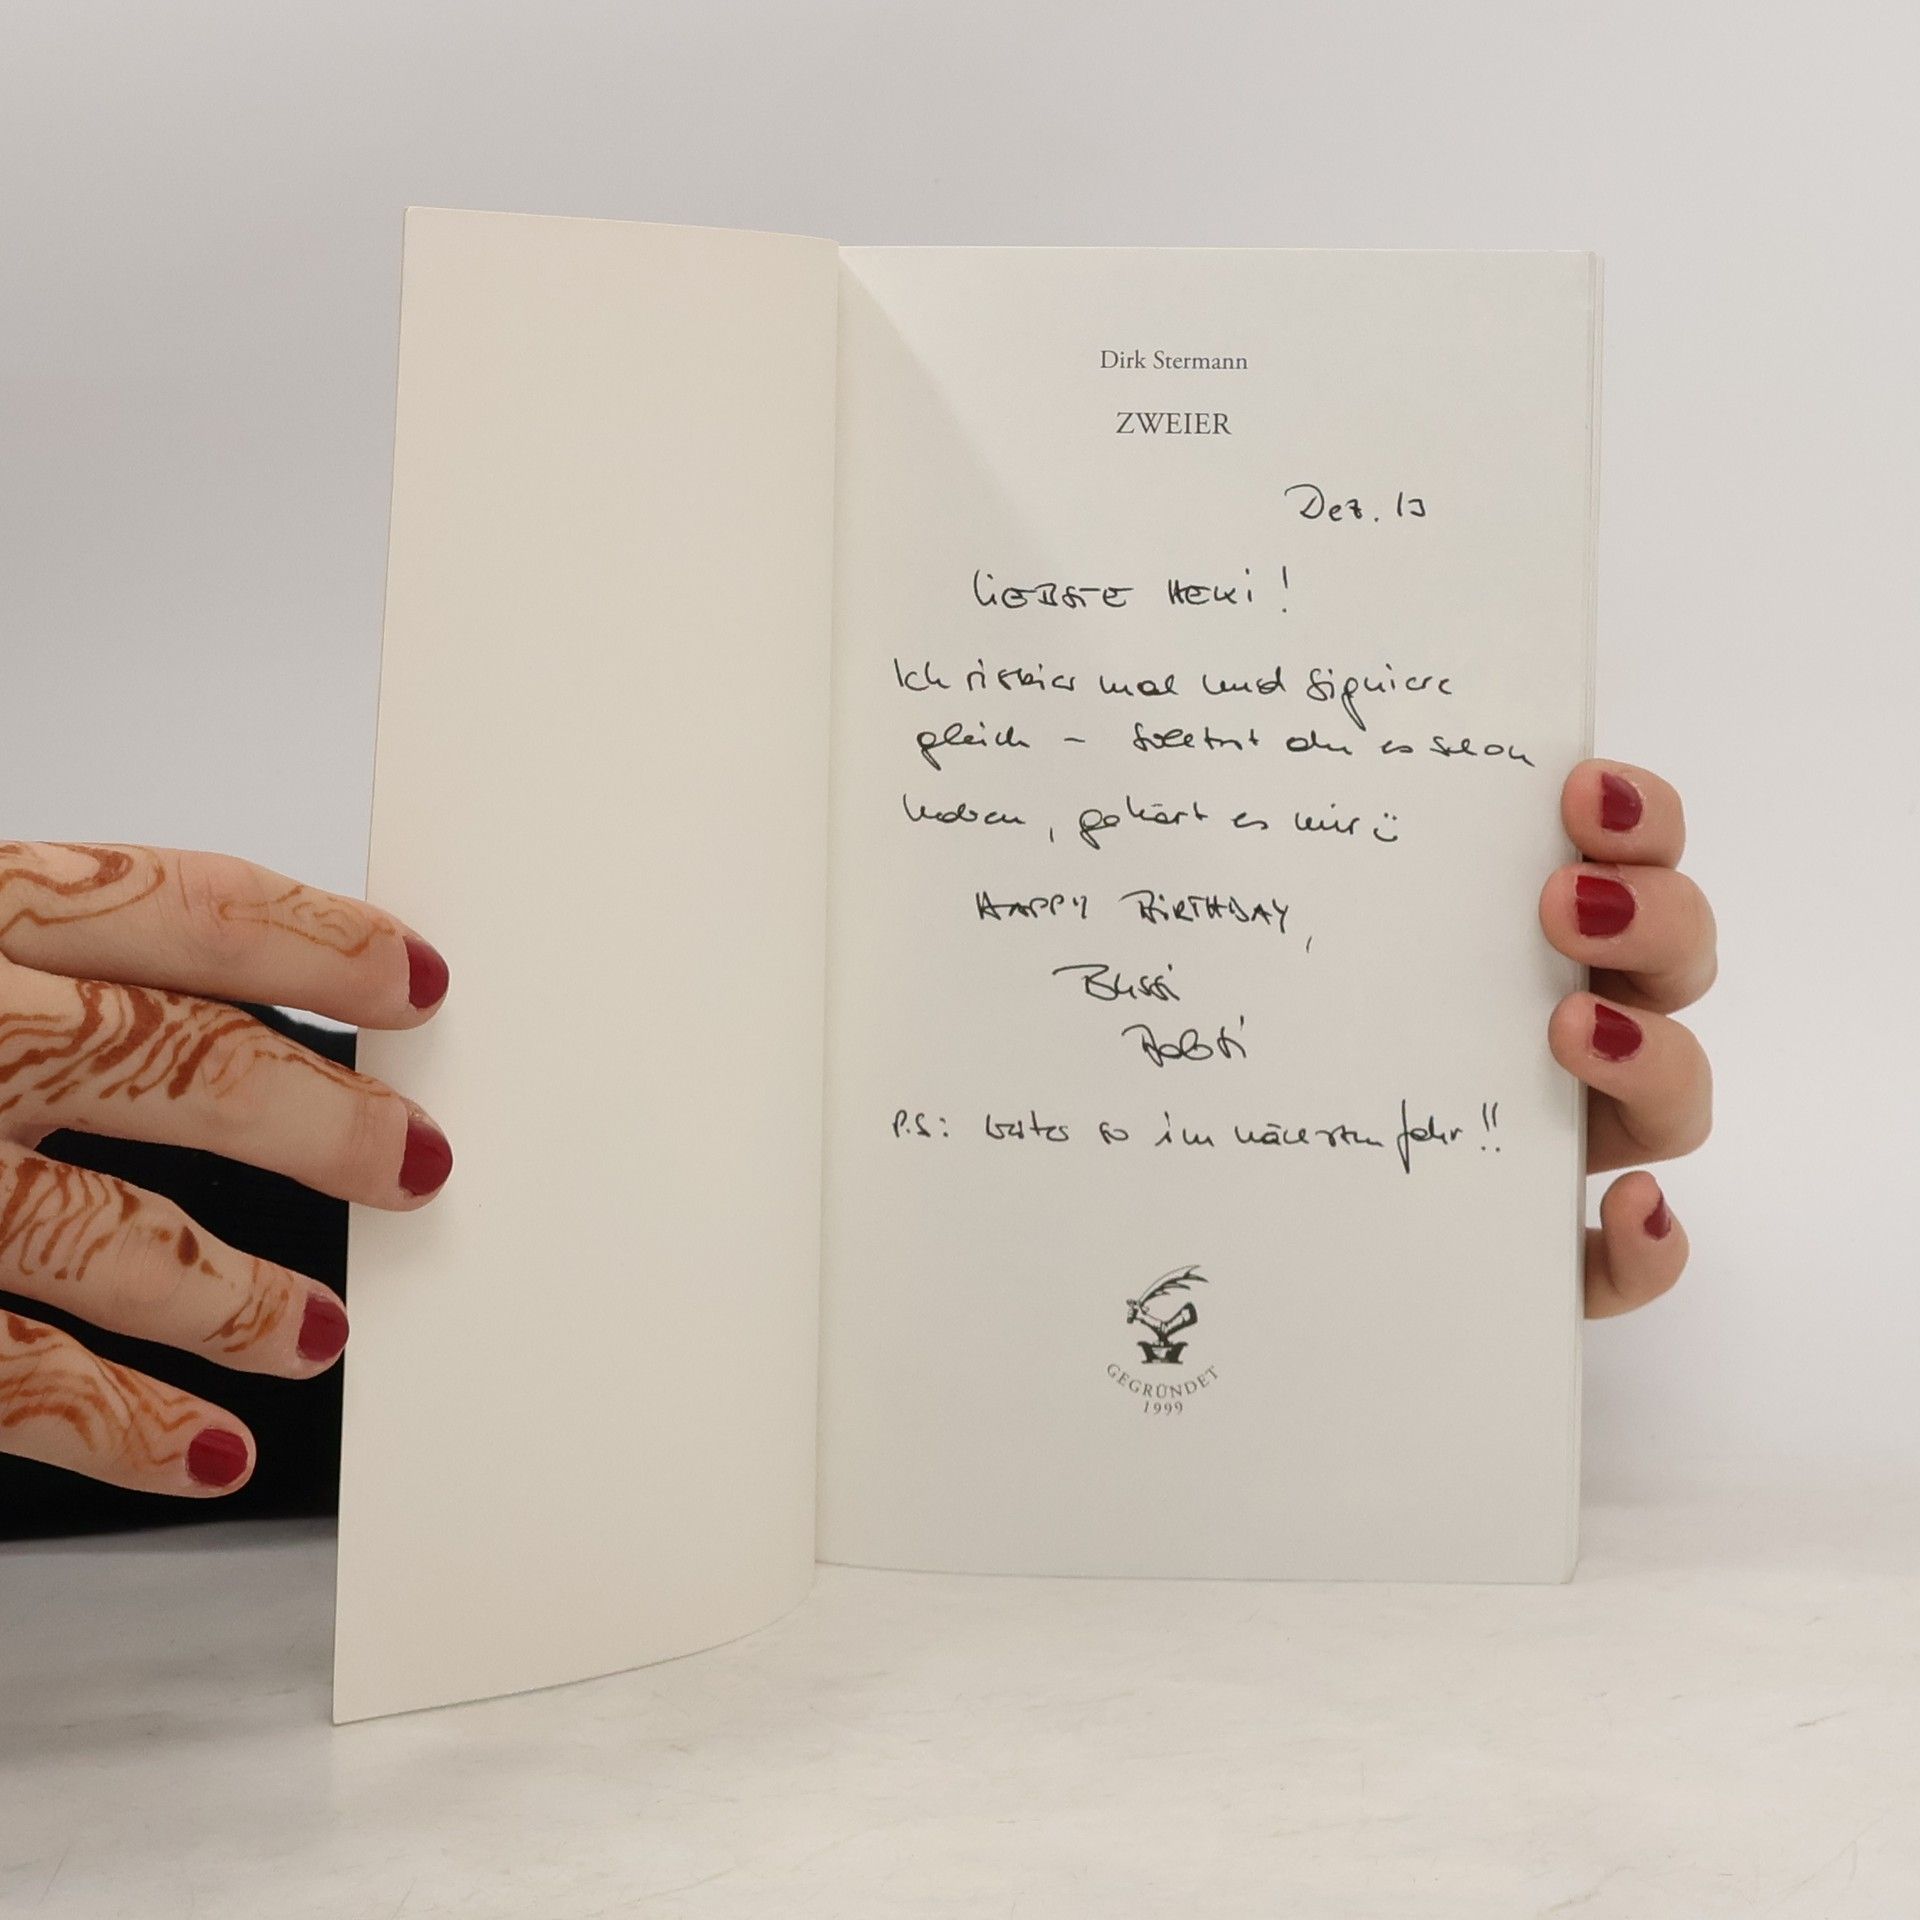 Dirk Stermann
ZWEIER
Dez. 13
LiEBSTE HEKi!
Ich riskier mal und signiere
gleich – solltest du es schon
haben, gehört es mir ü
HAPPY BiRTHDAY,
Bussi
P.S: weiter so im nächsten Jahr!!
GEGRÜNDET
1999